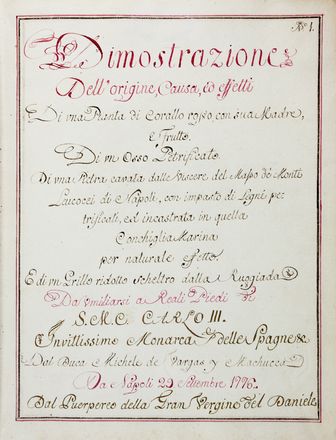 N.º 1.
Dimostrazione
Dell'origine, Causa, ed effetti
Di vna Pianta di Corallo rosso, con sua Madre,
e Frutto.
Di vn Osso Petrificato.
Di vna Pietra cavata dalle Viscere del Masso de' Monti
Leucocei di Napoli, con impasto di Legni pe:
trificati, ed incastrata in quella
Conchiglia Marina
per naturale effetto.
E di vn Grillo ridotto Scheltro dalla Ruggiada
Da vmiliarsi a Reali Piedi Di
S. M. C. CARLO III.
Invittissimo Monarca delle Spagne &c.
Dal Duca Michele de Vargas y Machucca
Da Napoli 29 Settembre 1776.
Dal Puerpereo della Gran Vergine del Daniele